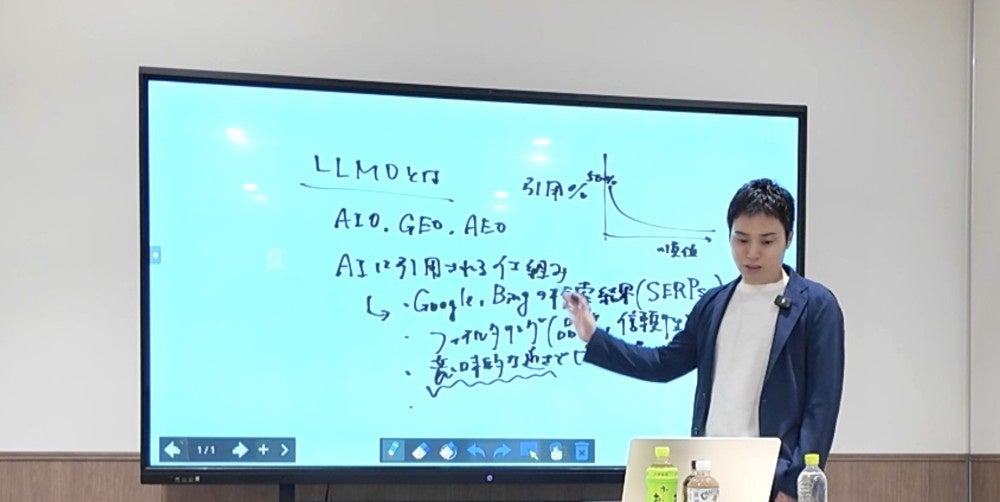 LLMOとは
AIO. GEO. AEO
AIに引用される仕組み
・Google. Bingの検索結果(SERPs)
・フィルタリング(品質, 信頼性
・意味的な近さで
引用% 50%
順位
1/1